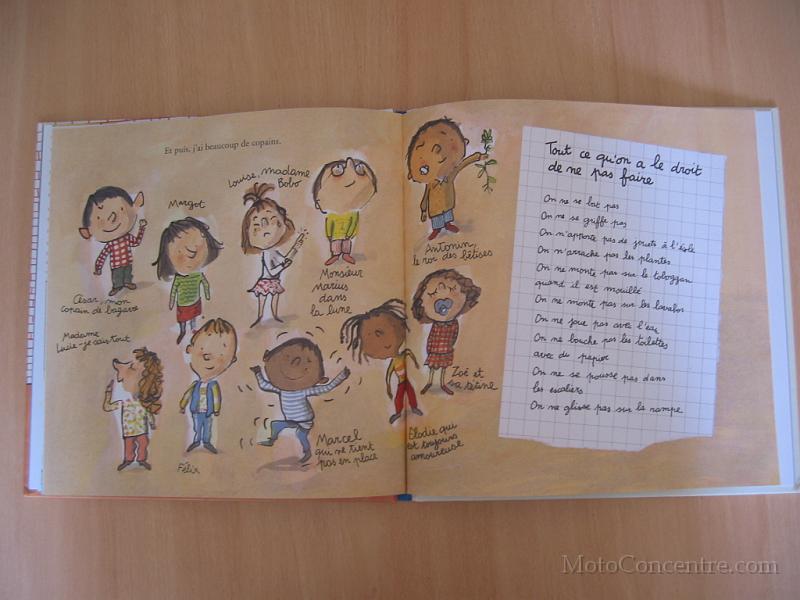 Et puis, j'ai beaucoup de copains.
César, mon
copain de bagarre
Margot
Louise, madame
Bobo
Monsieur
Marius
dans
la lune
Antonin,
le roi des bêtises
Madame
Lucie-je sais tout
Félix
Marcel
qui ne tient
pas en place
Elodie qui
est toujours
amoureuse
Zoé et
sa tétine
Tout ce qu'on a le droit
de ne pas faire
On ne se bat pas
On ne se griffe pas
On n'apporte pas de jouets à l'école
On n'arrache pas les plantes
On ne monte pas sur le toboggan
quand il est mouillé
On ne monte pas sur les lavabos
On ne joue pas avec l'eau
On ne bouche pas les toilettes
avec du papier
On ne se pousse pas dans
les escaliers
On ne glisse pas sur la rampe
MotoConcentre.com